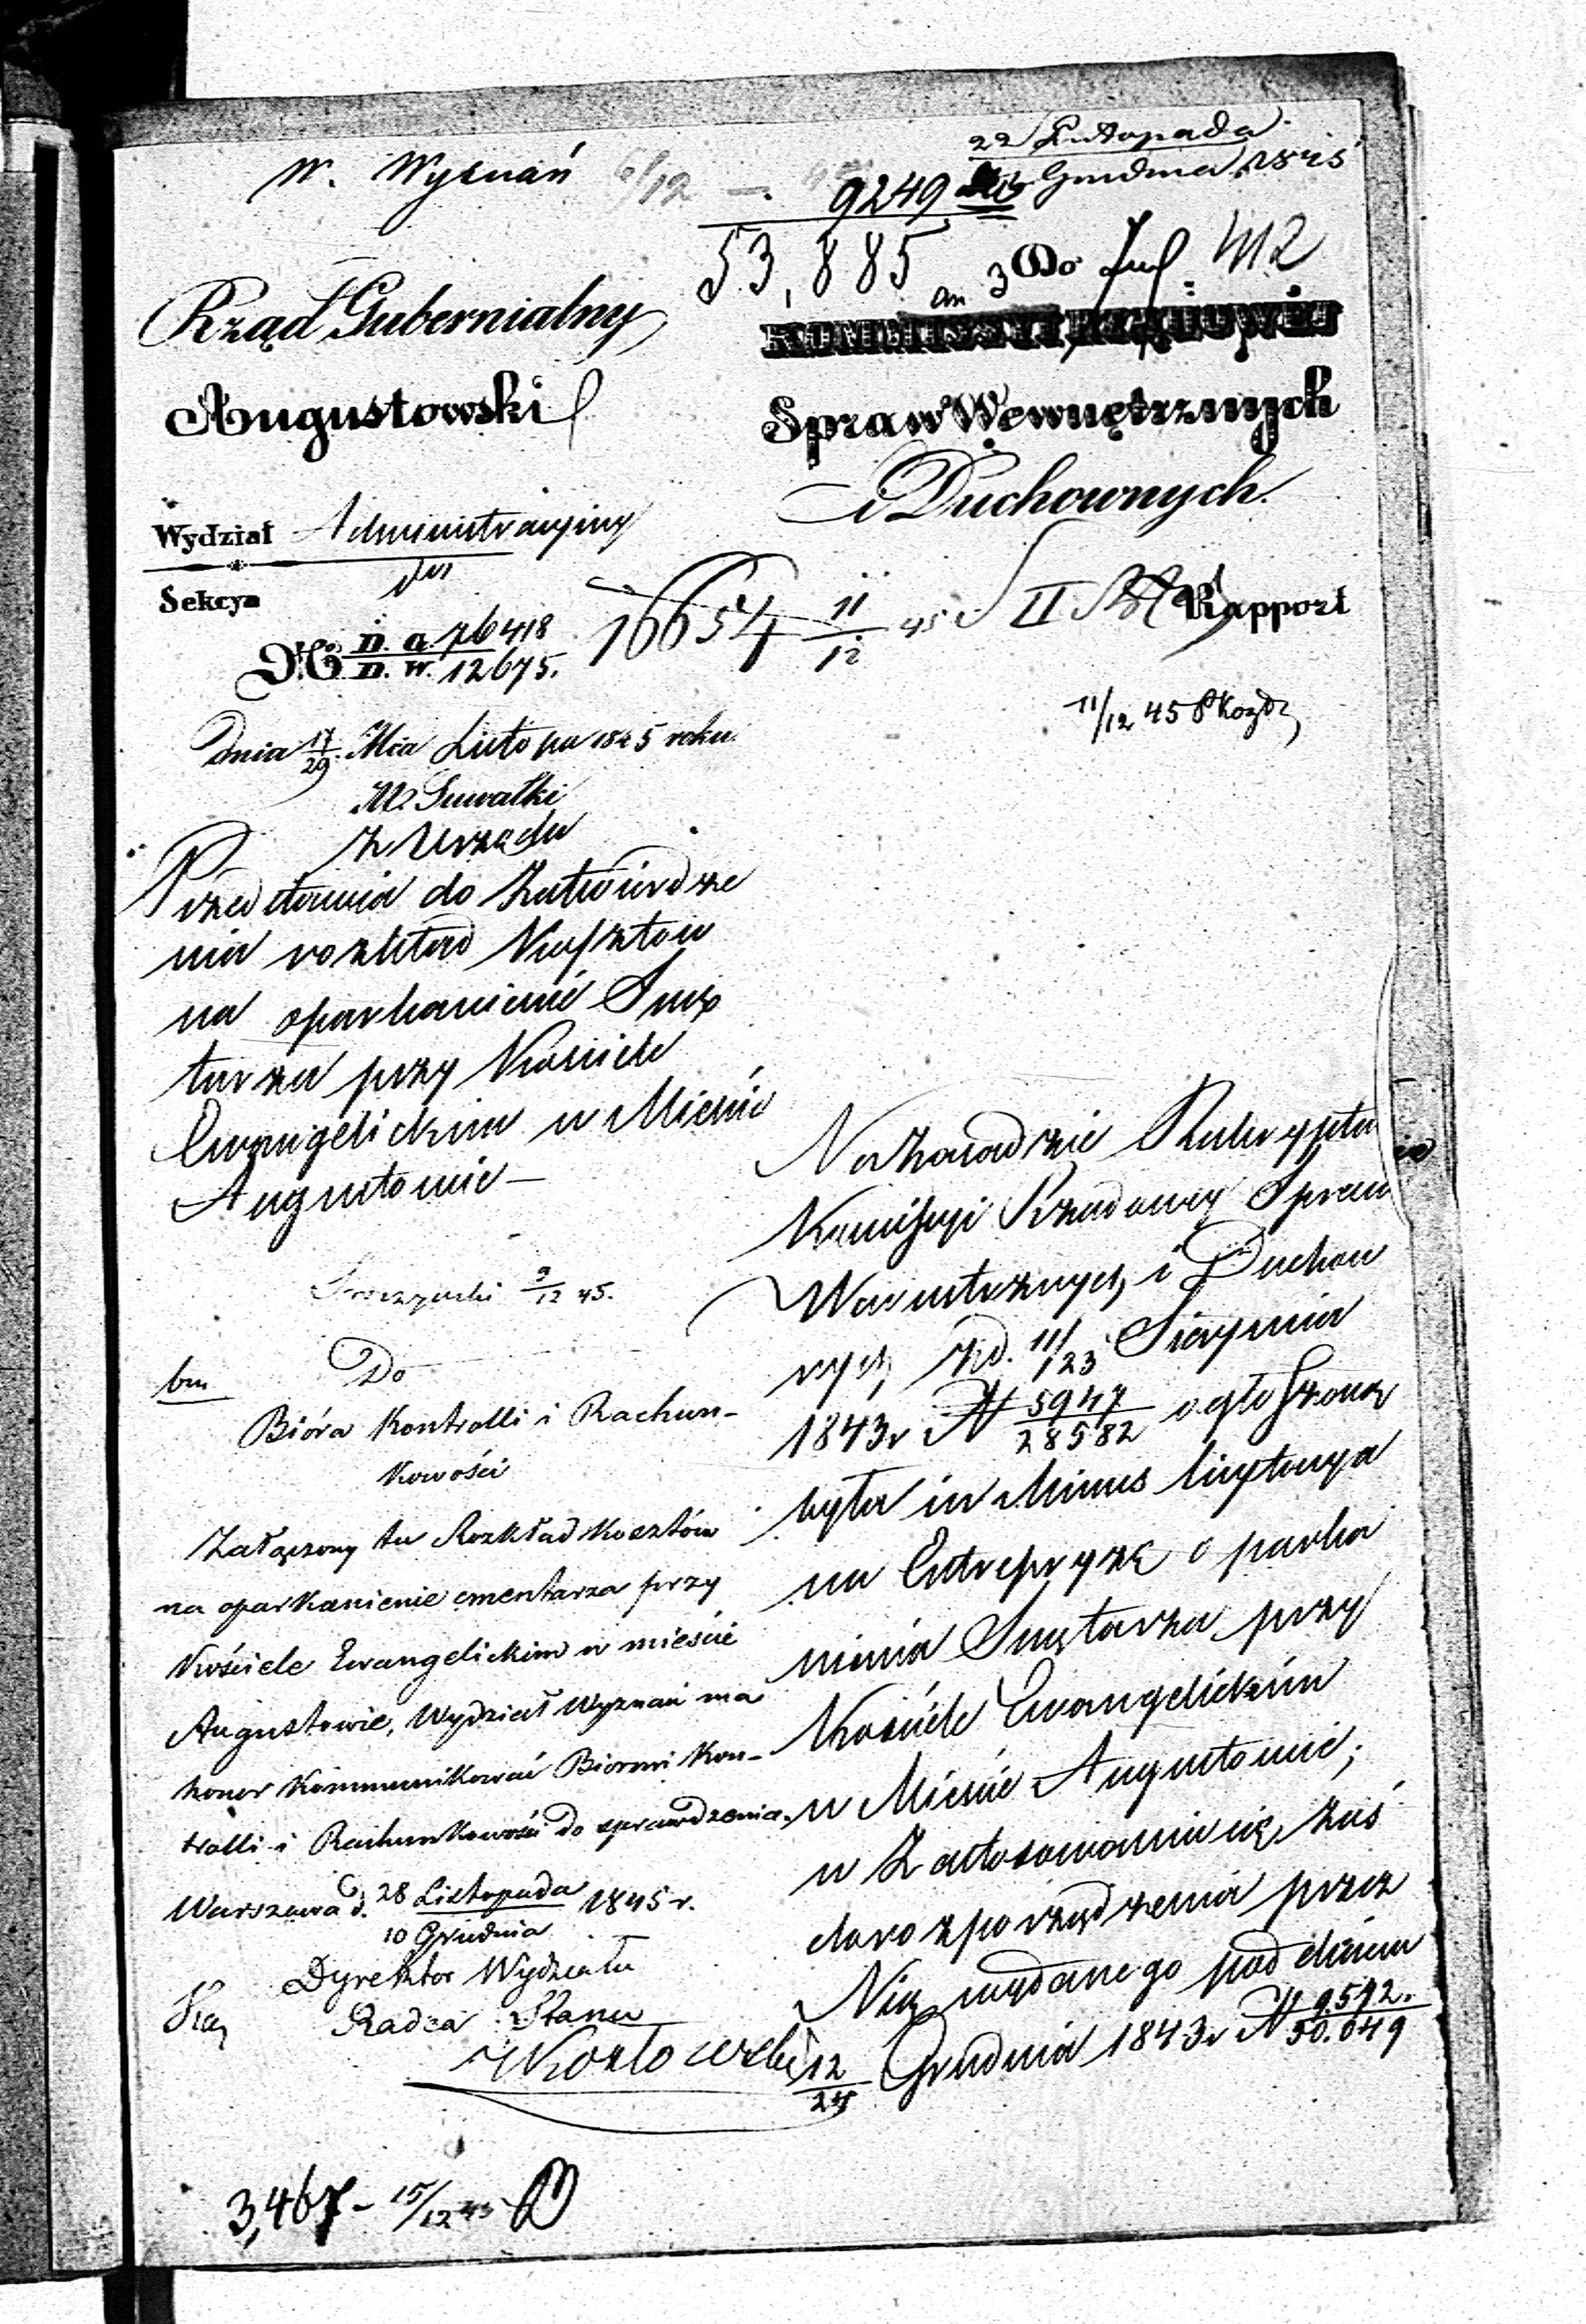 W. Wyznań 6/12
22 Listopada
Grudnia 1845
9249
53,885 Do 412
an 3
Rząd Gubernialny
Augustowski
KOMMISSYI RZĄDOWÉJ
Spraw Wewnętrznych
i Duchownych.
Wydział Administracyjny
Sekcya
No D. G. 76418
D. W. 12675.
16654 11/12 45 II
Rapport
11/12 45
Dnia 17/29 Mca Listopa 1845 roku.
M. Suwałki
Z Urzędu
Przedstawia do Zatwierdze
nia rozkład Kosztow
na oparkanienie Smę
tarza przy Kościele
Ewangelickim w Mieście
Augustowie —
9/12 45.
bm
Do
Bióra Kontrolli i Rachun-
kowości
Załączony tu Rozkład kosztów
na oparkanienie cmentarza przy
Kościele Ewangelickim w mieście
Augustowie, Wydział Wyznań ma
honor kommunikować Biorowi Kon-
trolli i Rachunkowości do sprawdzenia.
Warszawa d. 28 Listopada 1845 r.
10 Grudnia
Dyrektor Wydziału
Radca Stanu
3,467 – 15/12 45
Na zasadzie Reskryptu
Komissyi Rządowey Spraw
Wewnetrznych i Duchow
nych z d. 11/23 Sierpnia
1843 r N 5947/28582 ogłoszona
była in Minus licytacya
na Entrepryzę oparka
nienia Smętarza przy
Kościele Ewangelickim
w Mieście Augustowie;
w Zastosowaniu się zaś
do rozporządzenia przez
Nią wydanego pod dniem
12/24 Grudnia 1843 r N 9592./50.049